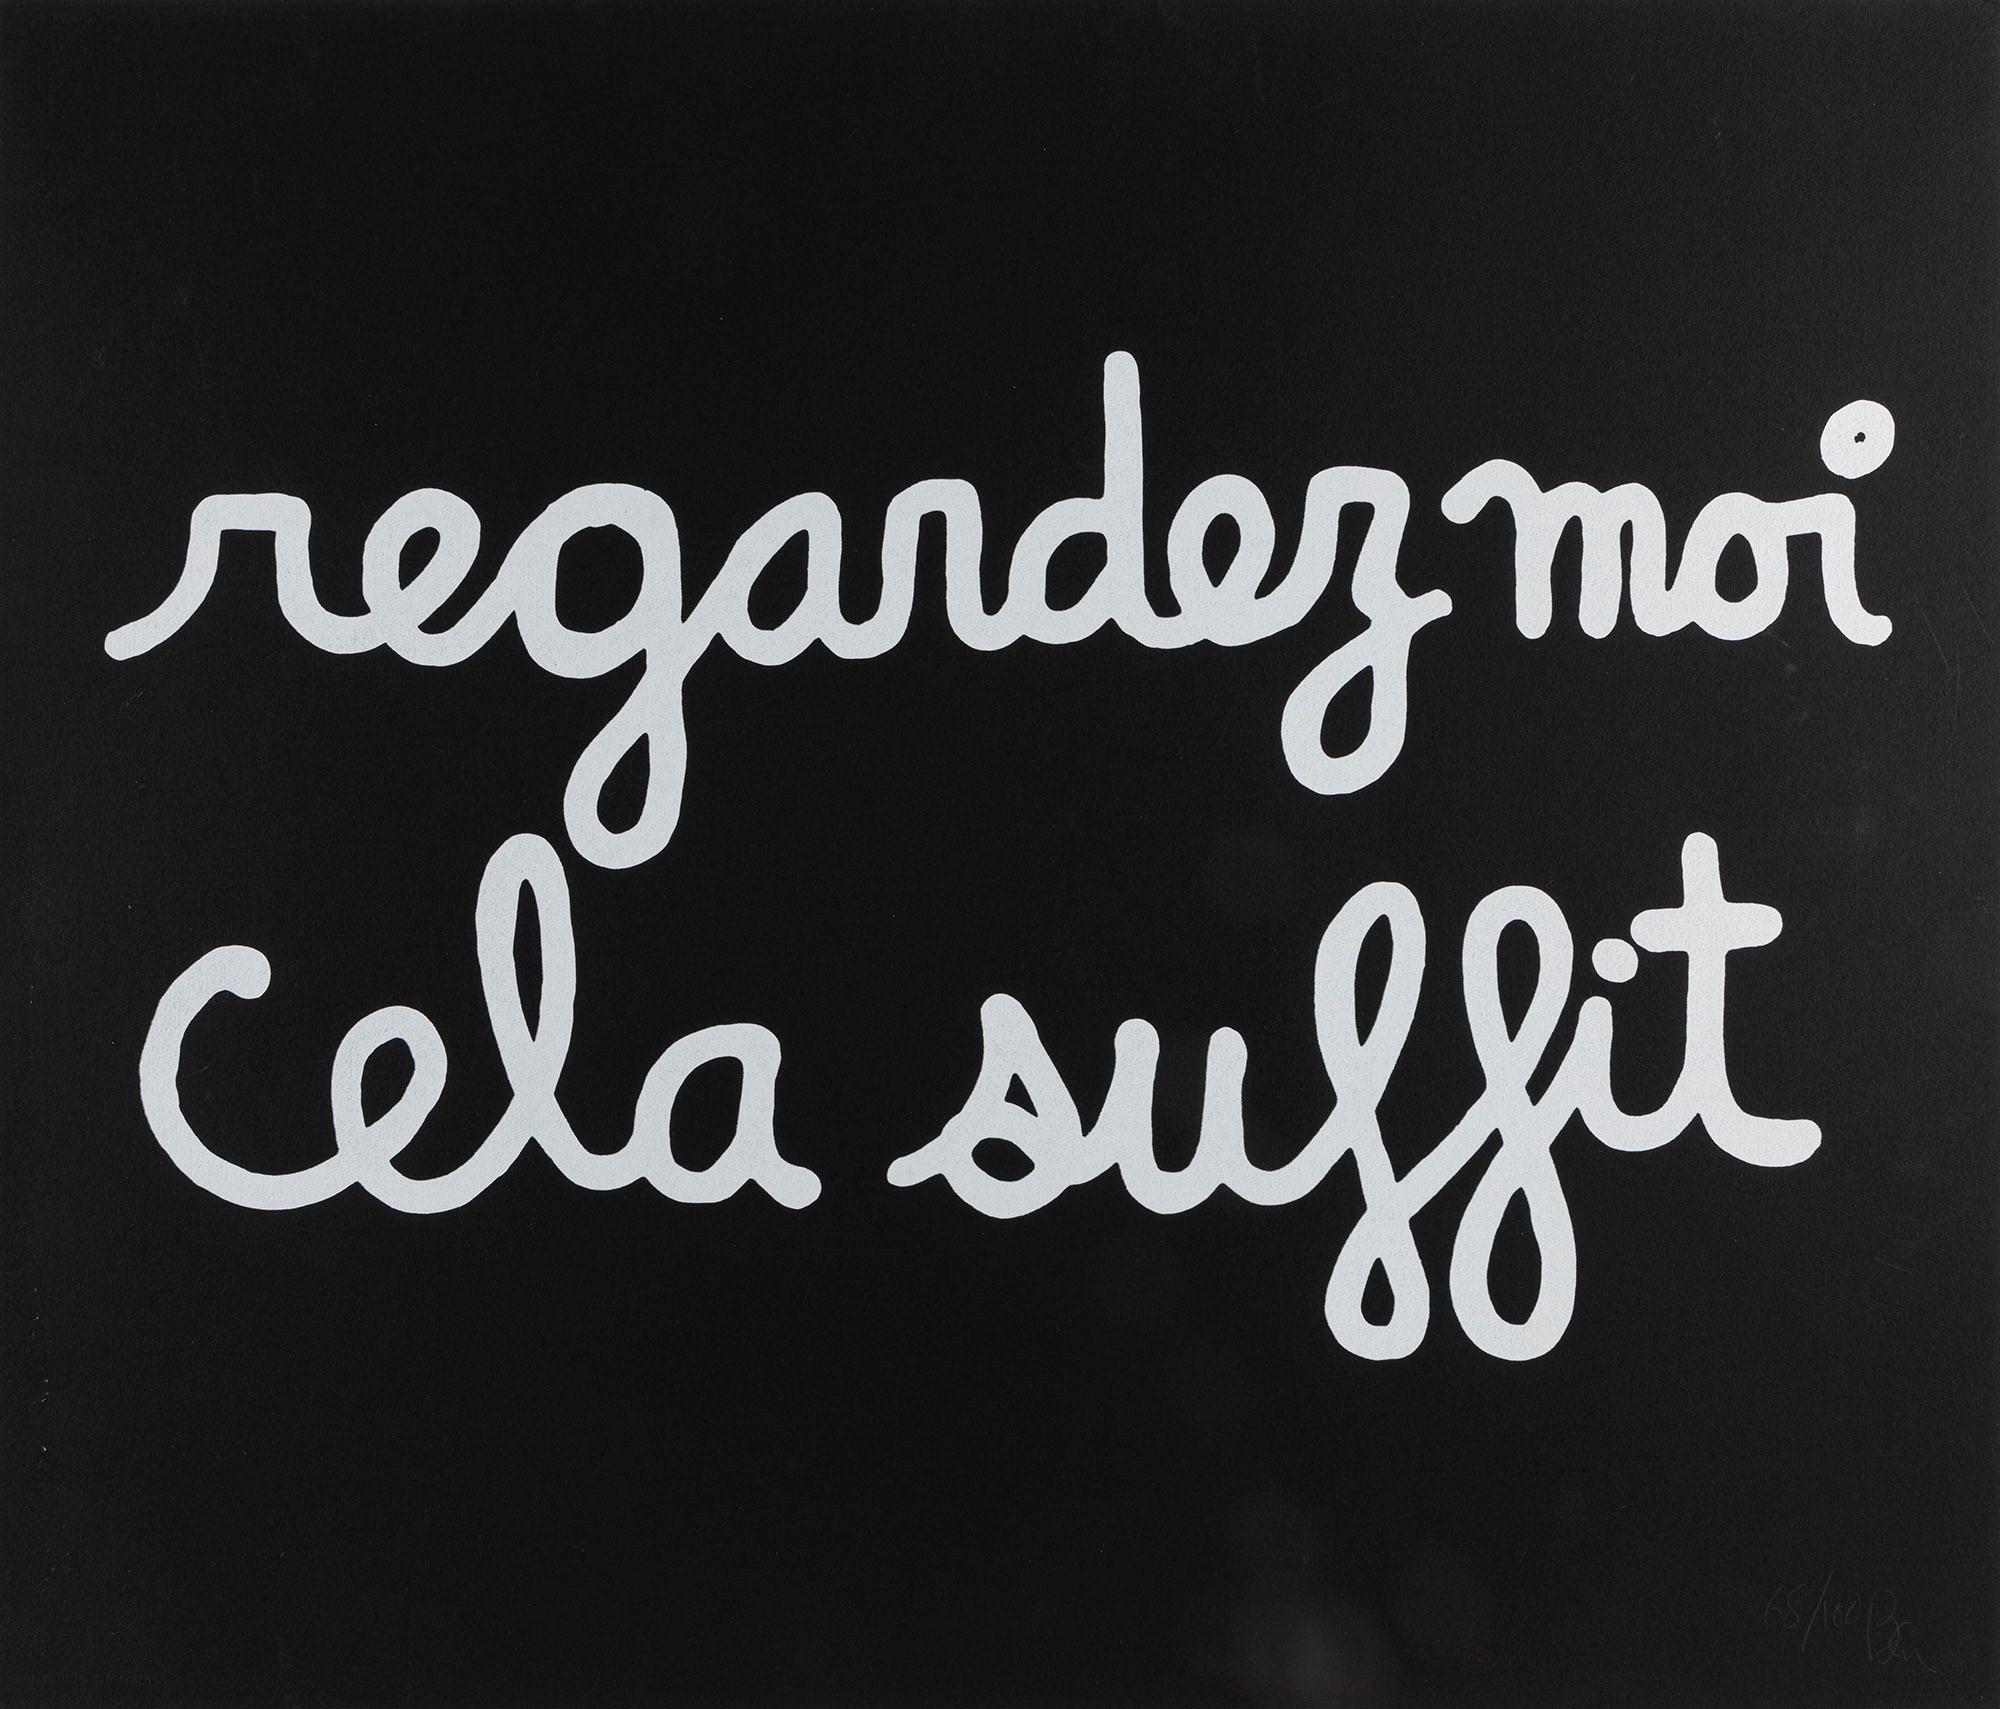 regardez moi
Cela suffit
68/100 Ben